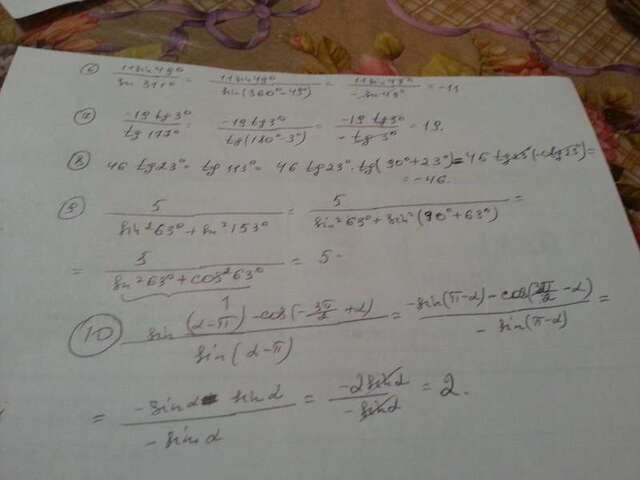 ⑥ 11 sin 49° / sin 311° = 11 sin 49° / sin(360° - 49°) = 11 sin 49° / - sin 49° = -11
⑦ -19 tg 3° / tg 177° = -19 tg 3° / tg(180° - 3°) = -19 tg 3° / - tg 3° = 19.
⑧ 46 tg 23° · tg 113° = 46 tg 23° · tg(90° + 23°) = 46 tg 23° (-ctg 23°) =
= -46.
⑨ 5 / sin² 63° + sin² 153° = 5 / sin² 63° + sin² (90° + 63°) =
= 5 / sin² 63° + cos² 63° = 5.
1
⑩ sin (α - π) - cos(- 3π/2 + α) / sin(α - π) = - sin(π - α) - cos(3π/2 - α) / - sin(π - α) =
= - sin α sin α / - sin α = -2 sin α / - sin α = 2.